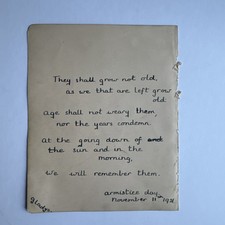 They shall grow not old,
as we that are left grow
old.
Age shall not weary them,
nor the years condemn.
At the going down of and
the sun and in the
morning,
We will remember them.
armistice day,
November 11
Gladys